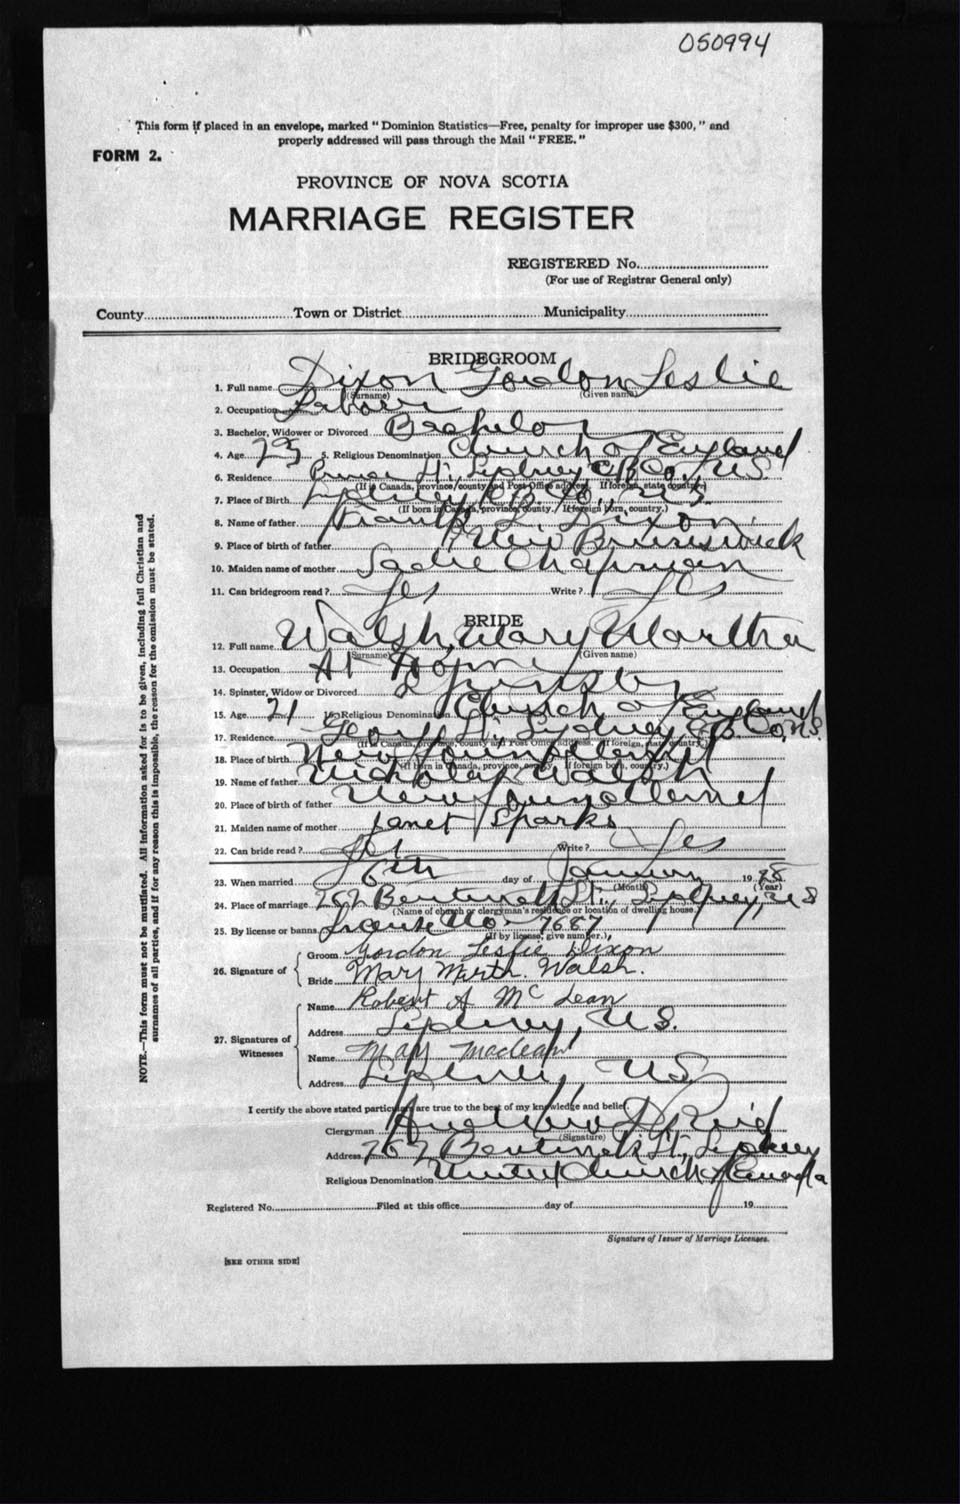 050994
This form if placed in an envelope, marked "Dominion Statistics—Free, penalty for improper use $300," and
properly addressed will pass through the Mail "FREE."
FORM 2.
PROVINCE OF NOVA SCOTIA
MARRIAGE REGISTER
REGISTERED No.
(For use of Registrar General only)
County Town or District Municipality
NOTE.—This form must not be mutilated. All information asked for is to be given, including full Christian and
surnames of all parties, and if for any reason this is impossible, the reason for the omission must be stated.
BRIDEGROOM
1. Full name Dixon Gordon Leslie
(Surname) (Given name)
2. Occupation Labour
3. Bachelor, Widower or Divorced Bachelor
4. Age 23 5. Religious Denomination Church of England
6. Residence St., Sydney C.B. Co., N.S.
(If in Canada, province, county and Post Office address. If foreign, state country)
7. Place of Birth Sydney C.B. Co., N.S.
(If born in Canada, province, county. If foreign born, country.)
8. Name of father Frank L. Dixon
9. Place of birth of father New Brunswick
10. Maiden name of mother Sadie Chapman
11. Can bridegroom read? Yes Write? Yes
BRIDE
12. Full name Walsh, Mary Martha
(Surname) (Given name)
13. Occupation At Home
14. Spinster, Widow or Divorced Spinster
15. Age 21 16. Religious Denomination Church of England
17. Residence George St., Sydney C.B. Co., N.S.
(If in Canada, province, county and Post Office address. If foreign, state country)
18. Place of birth Newfoundland
(If born in Canada, province, county. If foreign born, country.)
19. Name of father Nicholas Walsh
20. Place of birth of father Newfoundland
21. Maiden name of mother Janet Sparks
22. Can bride read? Yes Write? Yes
23. When married 6th day of January 19 28
(Month) (Year)
24. Place of marriage 262 Bentinck St., Sydney, N.S
(Name of church or clergyman's residence or location of dwelling house.)
25. By license or banns License No 7667
(If by license, give number.)
26. Signature of
Groom Gordon Leslie Dixon
Bride Mary Marth. Walsh.
27. Signatures of
Witnesses
Name Robert A McLean
Address Sydney, N.S.
Name Mary Maclean
Address Sydney, N.S.
I certify the above stated particulars are true to the best of my knowledge and belief.
Clergyman Andrew D. Reid
(Signature)
Address 262 Bentinck St., Sydney
Religious Denomination United Church of Canada
Registered No. Filed at this office day of 19
Signature of Issuer of Marriage Licenses.
[SEE OTHER SIDE]